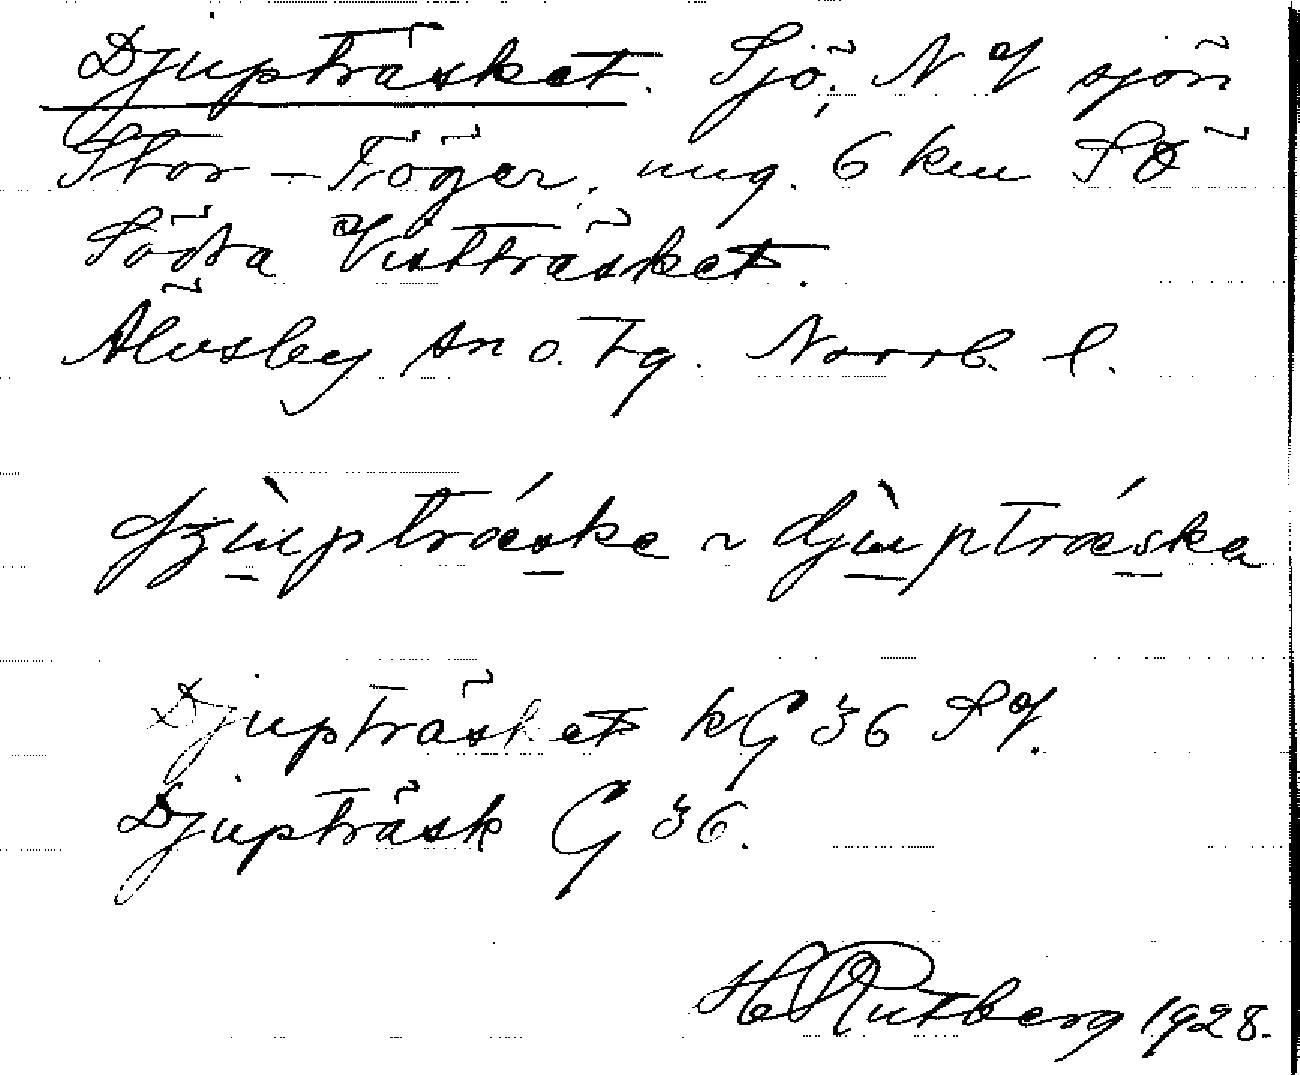 Djupträsket. Sjö, N V sjön
Stor-Töger, ung. 6 km SO
Södra Vistträsket.
Älvsby sn o. tg. Norrb. l.
djùptrǽske ~ djùptrǽska
Djupträsket kG 36 SV.
Djupträsk G 36.
H Rutberg 1928.